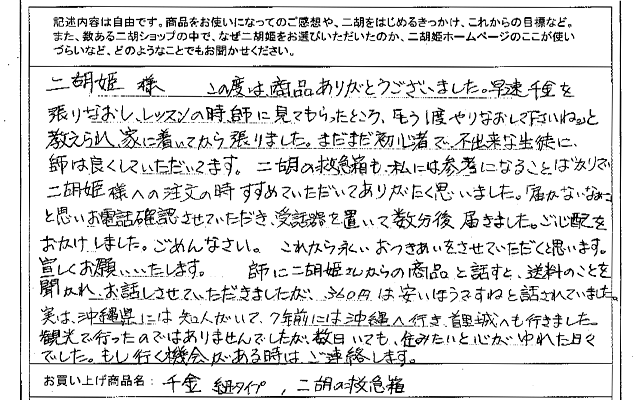 記述内容は自由です。商品をお使いになってのご感想や、二胡をはじめるきっかけ、これからの目標など。
また、数ある二胡ショップの中で、なぜ二胡姫をお選びいただいたのか、二胡姫ホームページのここが使い
づらいなど、どのようなことでもお聞かせください。
二胡姫 様 この度は商品ありがとうございました。早速千金を
張りなおし、レッスンの時、師に見てもらったところ、「もう1度やりなおして下さいね。」と
教えられ、家に着いてから張りました。まだまだ初心者で不出来な生徒に、
師は良くしていただいてます。二胡の救急箱も、私には参考になることばかりで
二胡姫様への注文の時すすめていただいてありがたく思いました。「届かないなぁ」
と思いお電話確認させていただき、受話器を置いて数分後届きました。ご心配を
おかけしました。ごめんなさい。これから永いおつきあいをさせていただくと思います。
宜しくお願いいたします。師に二胡姫さんからの商品と話すと、送料のことを
聞かれ、お話しさせていただきましたが、360円は安いほうですねと話されていました。
実は、沖縄県には知人がいて、7年前には沖縄へ行き、首里城へも行きました。
観光で行ったのではありませんでしたが、数日いても、住みたいと心がゆれた日々
でした。もし行く機会がある時はご連絡します。
お買い上げ商品名：千金 紐タイプ，二胡の救急箱